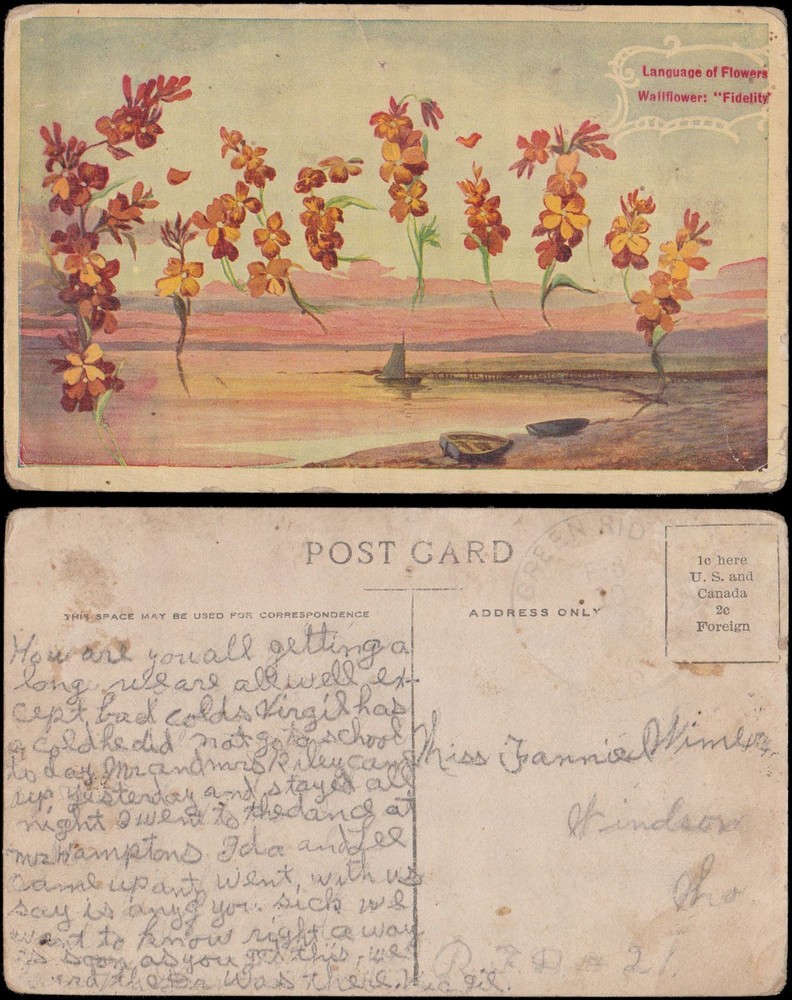 Language of Flowers
Wallflower: "Fidelity
Friendship
POST CARD
THIS SPACE MAY BE USED FOR CORRESPONDENCE
ADDRESS ONLY
GREEN RID
1c here
U. S. and
Canada
2c
Foreign
How are you all getting a
long we are all well ex-
cept bad colds Virgil has
a cold he did not go to school
to day Mr and mrs Riley came
up yesterday and stayed all
night I went to the dance at
mr Hamptons Ida and Lee
came up and went with us
say is any of you sick we
want to know right a way
as soon as you get this. we
the Dr was there.
Miss Fannie
Windsor
Mo.
R F D # 21